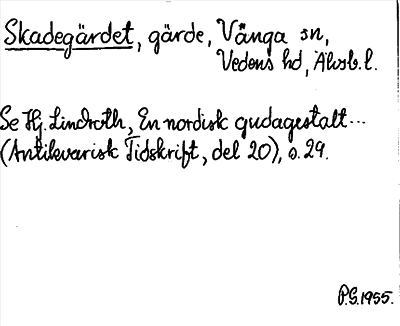 Skadegärdet, gärde, Vånga sn,
Vedens hd, Älvsb. l.
Se Hj. Lindroth, En nordisk gudagestalt...
(Antikvarisk Tidskrift, del 20), s. 29.
P.G. 1955.